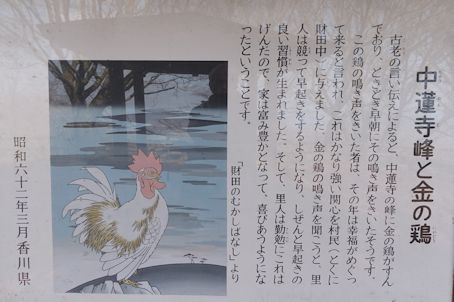 中蓮寺峰と金の鶏
古老の言い伝えによると、中蓮寺の峰に金の鶏がすん
でおり、ときどき早朝にその鳴き声をきいたそうです。
この鶏の鳴き声をきいた者は、その年は幸福がめぐっ
て来ると言われ、これはかなり強い関心を村民(とくに
財田中)に与えました。金の鶏の鳴き声を聞こうと、里
人は競って早起きをするようになり、しぜんと早起きの
良い習慣が生まれました。そして、里人は勤勉にこれは
げんだので、家は富み豊かとなって、喜びあうようにな
ったということです。
「財田のむかしばなし」より
昭和六十二年三月 香川県